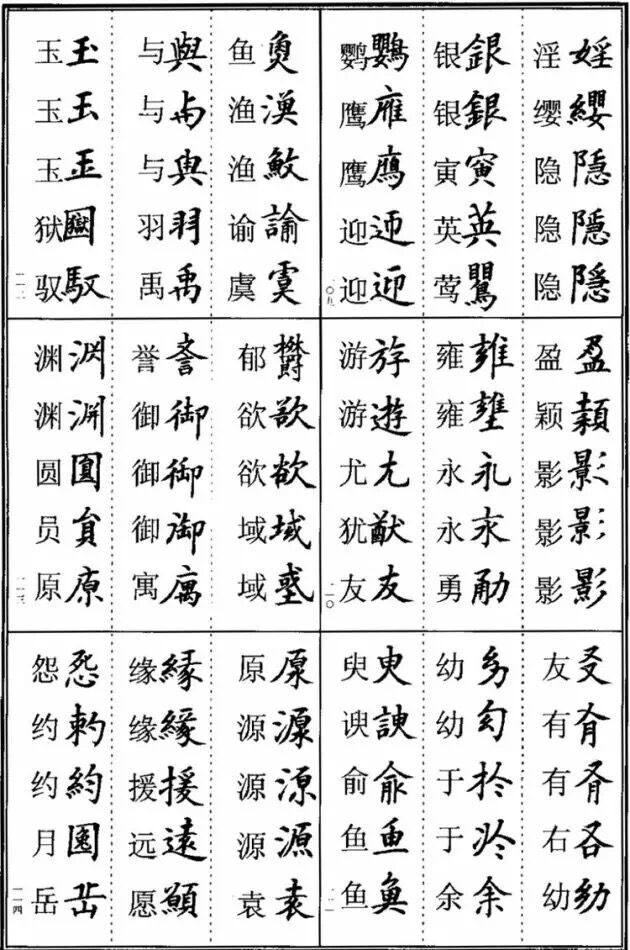 淫 婬
缨 纓
隐 隐
隐 隠
隐 隱
银 銀
银 銀
寅 寅
英 英
莺 鸎
鹦 鸚
鹰 䧹
鹰 鷹
迎 迊
迎 迎
一〇九
盈 盈
颖 頴
影 影
影 影
影 影
雍 雍
雍 壅
永 永
永 永
勇 勈
游 斿
游 遊
尤 尤
犹 猷
友 友
一一〇
友 㕛
有 有
有 有
右 右
幼 幼
幼 㓜
幼 幻
于 扵
于 於
余 余
臾 臾
谀 諛
俞 俞
鱼 鱼
鱼 魚
一一一
鱼 魚
渔 漁
渔 䱷
谕 諭
虞 虞
与 與
与 与
与 與
羽 羽
禹 禹
玉 玉
玉 玉
玉 玉
狱
驭 馭
一一二
郁 欝
欲 欲
欲 欲
域 域
域 域
誉 誉
御 御
御 御
御 御
寓 寓
渊 渊
渊 渊
圆 圓
员 員
原 原
一一三
原 原
源 源
源 源
源 源
袁 袁
缘 緣
缘 緣
援 援
远 遠
愿 顚
怨 怨
约 約
约 約
月 囝
岳 岳
一一四